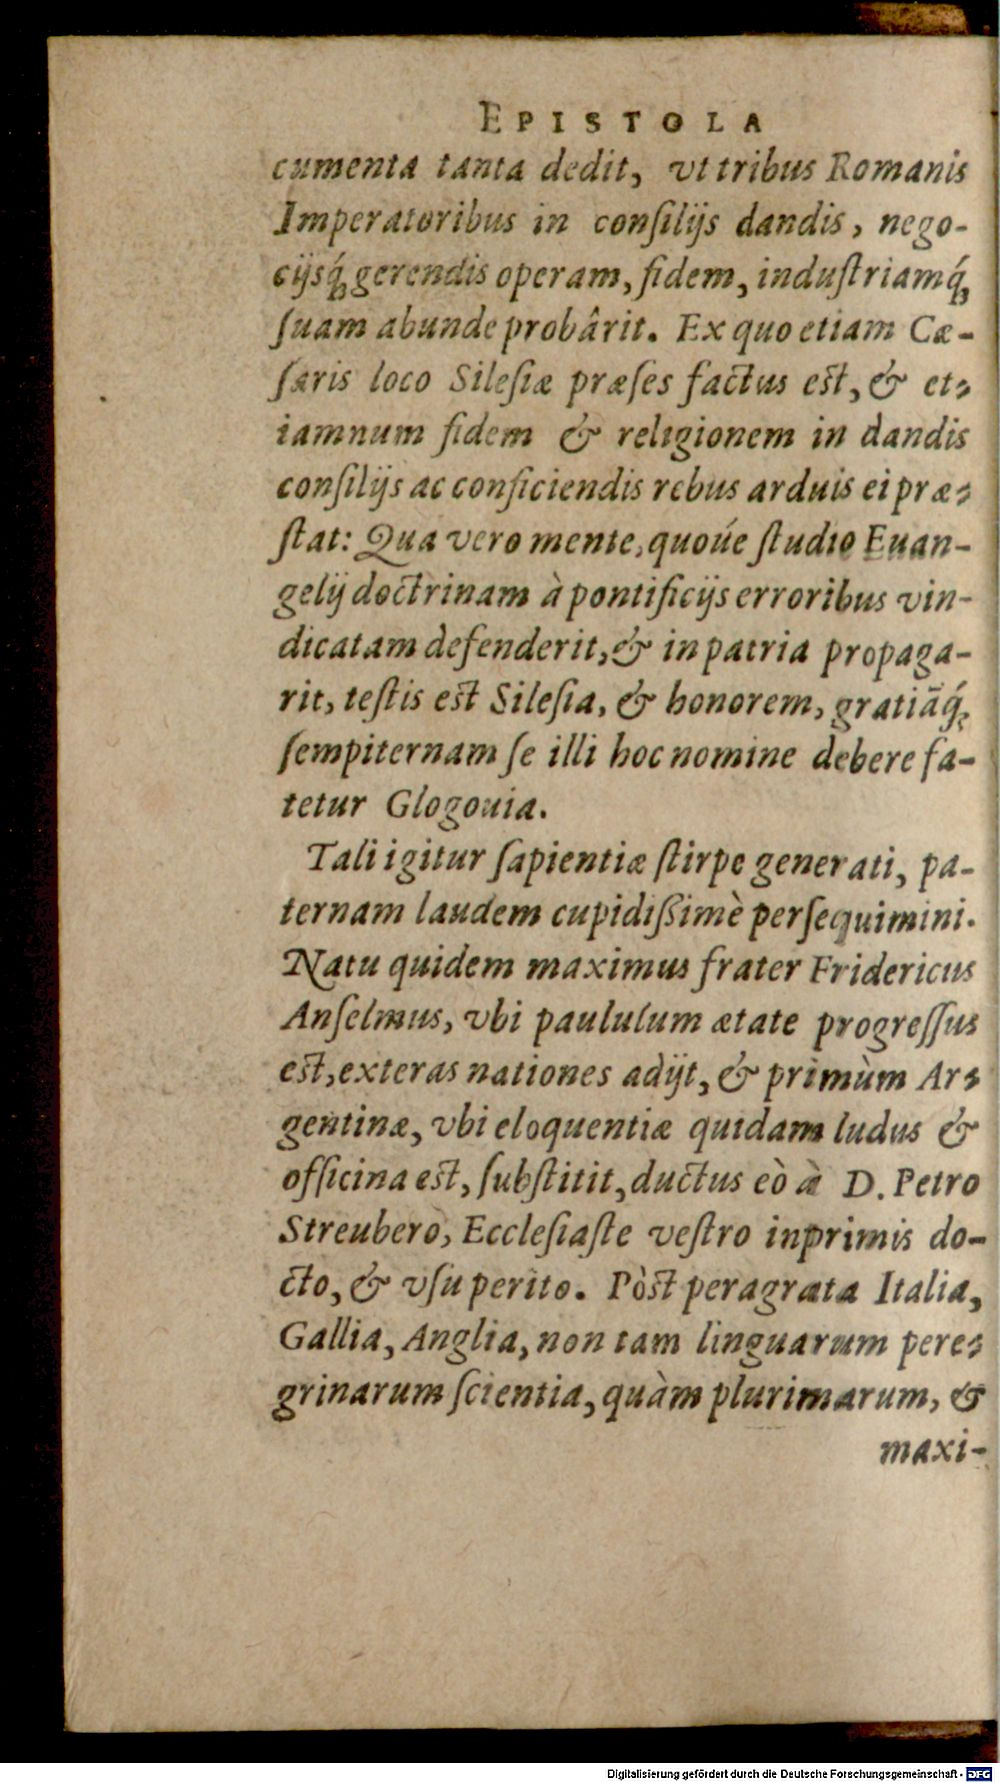 EPISTOLA
cumenta tanta dedit, vt tribus Romanis
Imperatoribus in conſilijs dandis, nego-
cijsq́; gerendis operam, fidem, induſtriamq́;
ſuam abunde probârit. Ex quo etiam Cæ-
ſaris loco Sileſiæ præſes factus est, & et-
iamnum fidem & religionem in dandis
conſilijs ac conficiendis rebus arduis ei præ-
ſtat: Qua vero mente, quoúe ſtudio Euan-
gelij doctrinam à pontificijs erroribus vin-
dicatam defenderit, & in patria propaga-
rit, teſtis est Sileſia, & honorem, gratiāq́;
ſempiternam ſe illi hoc nomine debere fa-
tetur Glogouia.
Tali igitur ſapientiæ ſtirpe generati, pa-
ternam laudem cupidißimè perſequimini.
Natu quidem maximus frater Fridericus
Anſelmus, vbi paululum ætate progreſſus
est, exteras nationes adijt, & primùm Ar-
gentinæ, vbi eloquentiæ quidam ludus &
officina est, ſubſtitit, ductus eò à D. Petro
Streubero, Eccleſiaſte veſtro inprimis do-
cto, & vſu perito. Pòst peragrata Italia,
Gallia, Anglia, non tam linguarum pere-
grinarum ſcientia, quàm plurimarum, &
maxi-
Digitalisierung gefördert durch die Deutsche Forschungsgemeinschaft - DFG